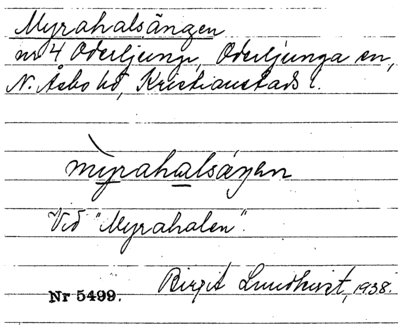 Myrahalsängen
nr 4 Oderljunga, Oderljunga sn,
N. Åsbo hd, Kristianstads l.
myrahalsáŋen
Vid "Myrahalen".
Birgit Lundkvist, 1938.
Nr 5499.